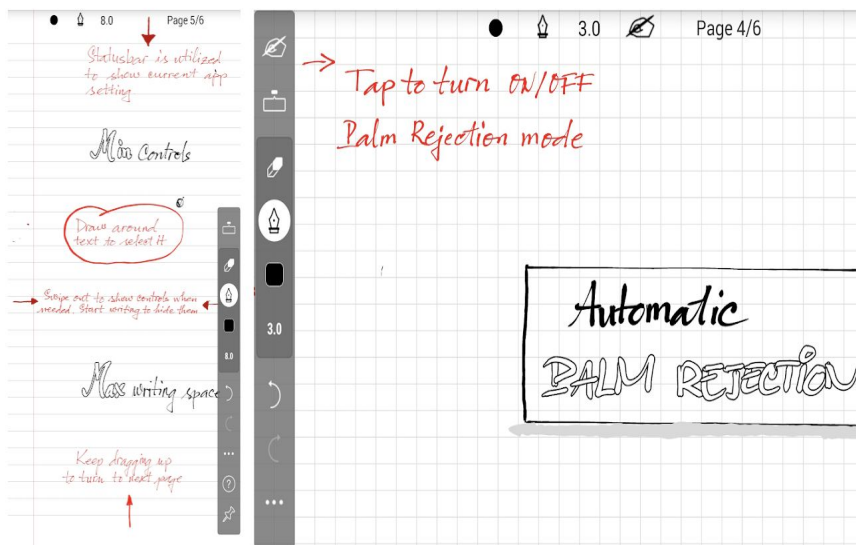 8.0 Page 5/6
Statusbar is utilized
to show current app
setting
Min Controls
Draw around
text to select it
Swipe out to show controls when
needed. Start writing to hide them
8.0
Max writing space
Keep dragging up
to turn to next page
3.0 Page 4/6
Tap to turn ON/OFF
Palm Rejection mode
3.0
Automatic
PALM REJECTION